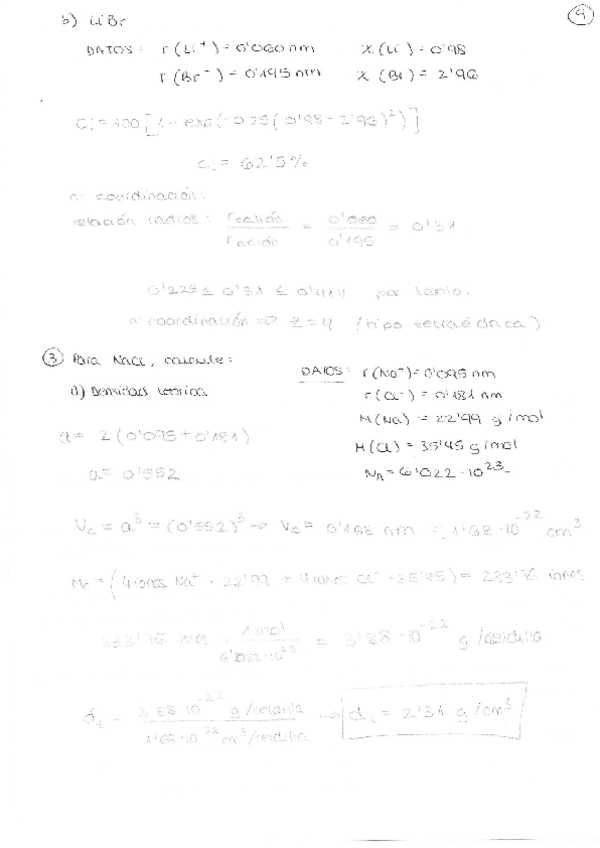 9
b) LiBr
DATOS: r(Li⁺)=0'060nm χ(Li)=0'98
r(Br⁻)=0'195nm χ(Br)=2'96
Ci=100[1-exp(-0'25(0'98-2'96)²)]
Ci=62'5%
nº coordinación:
relación radios: rcatión/ranión = 0'060/0'195 = 0'31
0'225≤0'31≤0'414 por tanto:
nº coordinación => z=4 (tipo tetraédrica)
3 Para NaCl, calcule: DATOS: r(Na⁺)=0'095 nm
a) Densidad teórica r(Cl⁻)=0'181 nm
M(Na)=22'99 g/mol
a= 2(0'095+0'181) M(Cl)=35'45 g/mol
a=0'552 NA=6'022·10²³
Vc=a³=(0'552)³ → Vc=0'168 nm = 1'68·10⁻²² cm³
Mc=(4 iones Na⁺·22'99+4 iones Cl⁻·35'45)=233'76 iones
233'76 · 1mol/6'022·10²³ = 3'88·10⁻²² g/celdilla
dt = 3'88·10⁻²² g/celdilla / 1'68·10⁻²² cm³/celdilla → dt=2'31 g/cm³